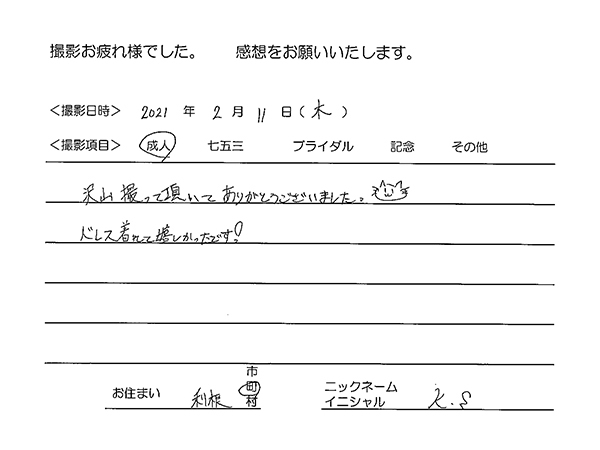 撮影お疲れ様でした。 感想をお願いいたします。
<撮影日時> 2021 年 2 月 11 日(木)
<撮影項目> 成人 七五三 ブライダル 記念 その他
沢山撮って頂いてありがとうございました。
ドレス着れて嬉しかったです!
お住まい 利根 市町村
ニックネーム イニシャル K.S